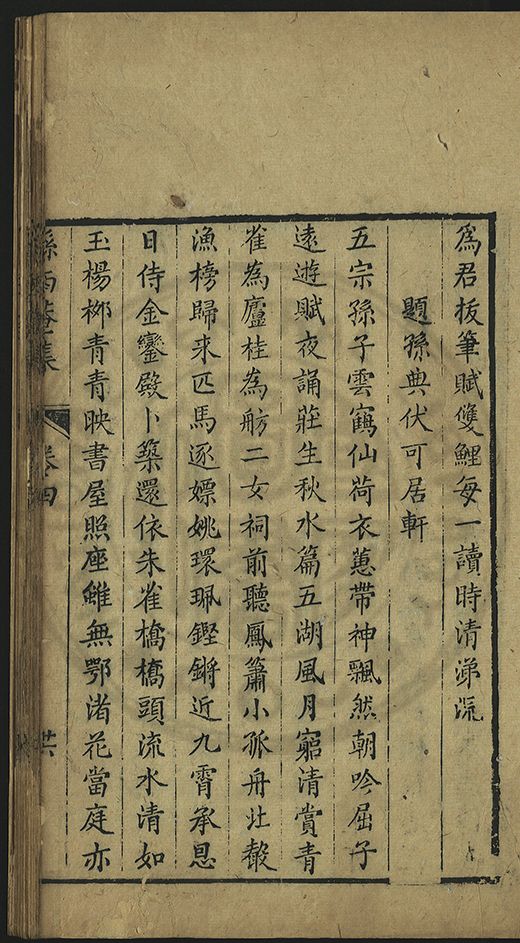 為君扳筆賦雙鯉每一讀時清涕泫
題孫典伏可居軒
五宗孫子雲鶴仙荷衣蕙帶神飄然朝吟屈子
遠遊賦夜誦莊生秋水篇五湖風月窮清賞青
雀為廬桂為舫二女祠前聽鳳簫小孤舟上
漁榜歸來匹馬逐嫖姚環珮鏗鏘近九霄承恩
日侍金鑾殿卜築還依朱雀橋橋頭流水清如
玉楊栁青青映書屋照座雖無鄂渚花當庭亦
孫西菴集
卷四